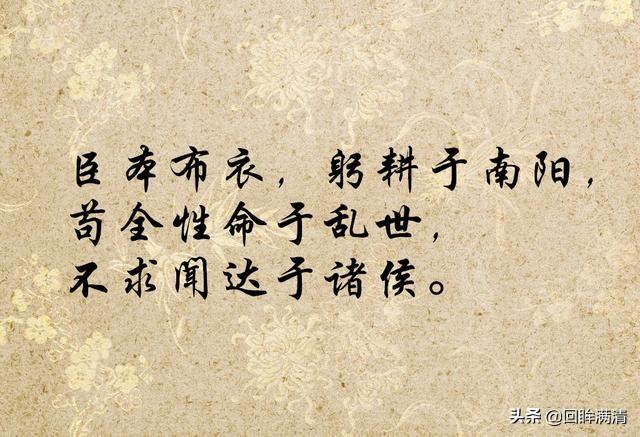 臣本布衣，躬耕于南阳，
苟全性命于乱世，
不求闻达于诸侯。
头条 @回眸满清